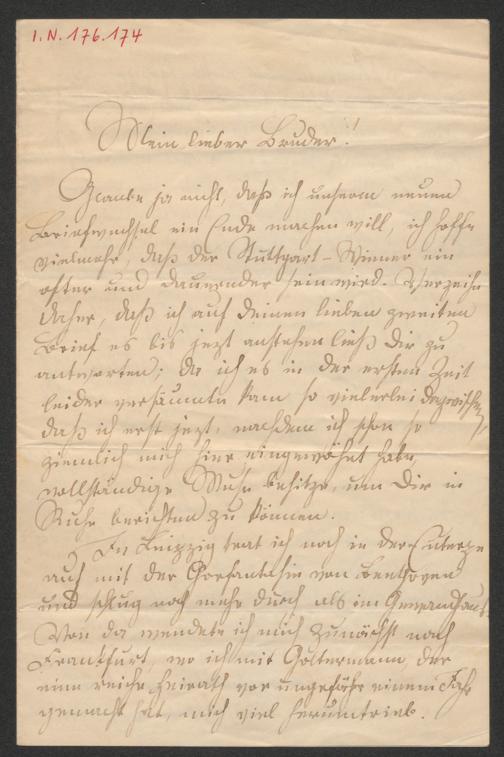 I.N. 176.174
Mein lieber Bruder!
Glaube ja nicht, daß ich unserm neuen
Briefwechsel ein Ende machen will, ich hoffe
vielmehr, daß der Stuttgart-Wiener ein
öfter und dauernder sein wird. Verzeih
daher, daß ich auf Deinen lieben zweiten
Brief es bis jezt anstehen ließ Dir zu
antworten; da ich es in der ersten Zeit
leider versäumte kam so vielerlei dazwischen,
daß ich erst jezt, nachdem ich schon so
ziemlich mich hier eingewöhnt habe,
vollständige Muße besitze, um Dir in
Ruhe berichten zu können.
In Leipzig trat ich noch in der Euterpe
auf mit der Chorfantasie von Beethoven
und schlug noch mehr durch als im Gewandhaus.
Von da wendete ich mich zunächst nach
Frankfurt, wo ich mit Goltermann, der
eine reiche Heirath vor ungefähr einem Jahr
gemacht hat, mich viel herumtrieb.